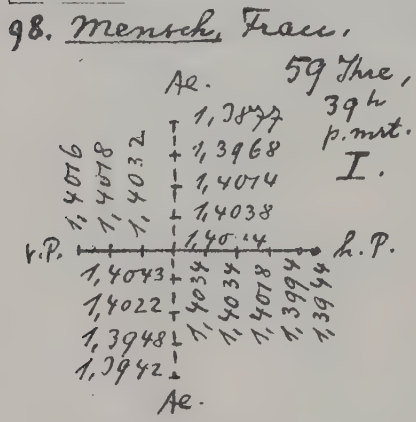 98. Mensch, Frau,
59 Jhre,
39 h
p. mrt.
I.
Ae.
1,3877
1,3968
1,4014
1,4038
1,4016
1,4018
1,4032
v.P.
h.P.
1,4043
1,4022
1,3948
1,3942
1,4034
1,4034
1,4018
1,3994
1,3944
Ae.